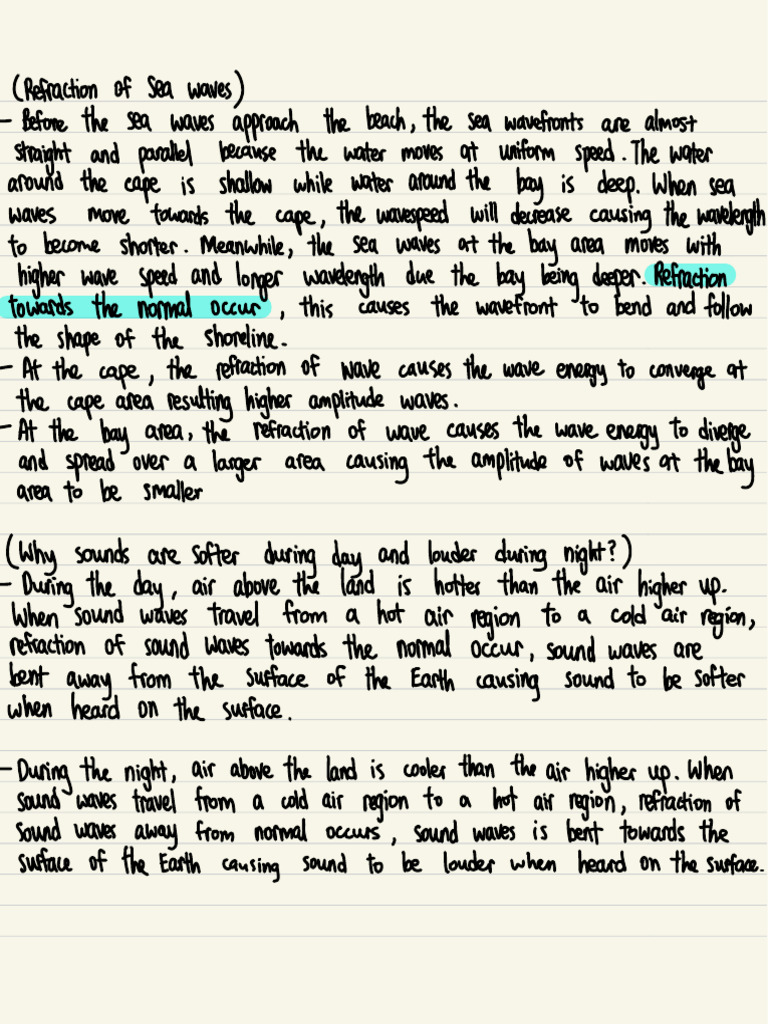 (Refraction of sea waves)
- Before the sea waves approach the beach, the sea wavefronts are almost
straight and parallel because the water moves at uniform speed. The water
around the cape is shallow while water around the bay is deep. When sea
waves move towards the cape, the wavespeed will decrease causing the wavelength
to become shorter. Meanwhile, the sea waves at the bay area moves with
higher wave speed and longer wavelength due the bay being deeper. Refraction
towards the normal occur, this causes the wavefront to bend and follow
the shape of the shoreline.
- At the cape, the refraction of wave causes the wave energy to converge at
the cape area resulting higher amplitude waves.
- At the bay area, the refraction of wave causes the wave energy to diverge
and spread over a larger area causing the amplitude of waves at the bay
area to be smaller
(Why sounds are softer during day and louder during night?)
- During the day, air above the land is hotter than the air higher up.
When sound waves travel from a hot air region to a cold air region,
refraction of sound waves towards the normal occur, sound waves are
bent away from the surface of the Earth causing sound to be softer
when heard on the surface.
- During the night, air above the land is cooler than the air higher up. When
sound waves travel from a cold air region to a hot air region, refraction of
sound waves away from normal occurs, sound waves is bent towards the
surface of the Earth causing sound to be louder when heard on the surface.